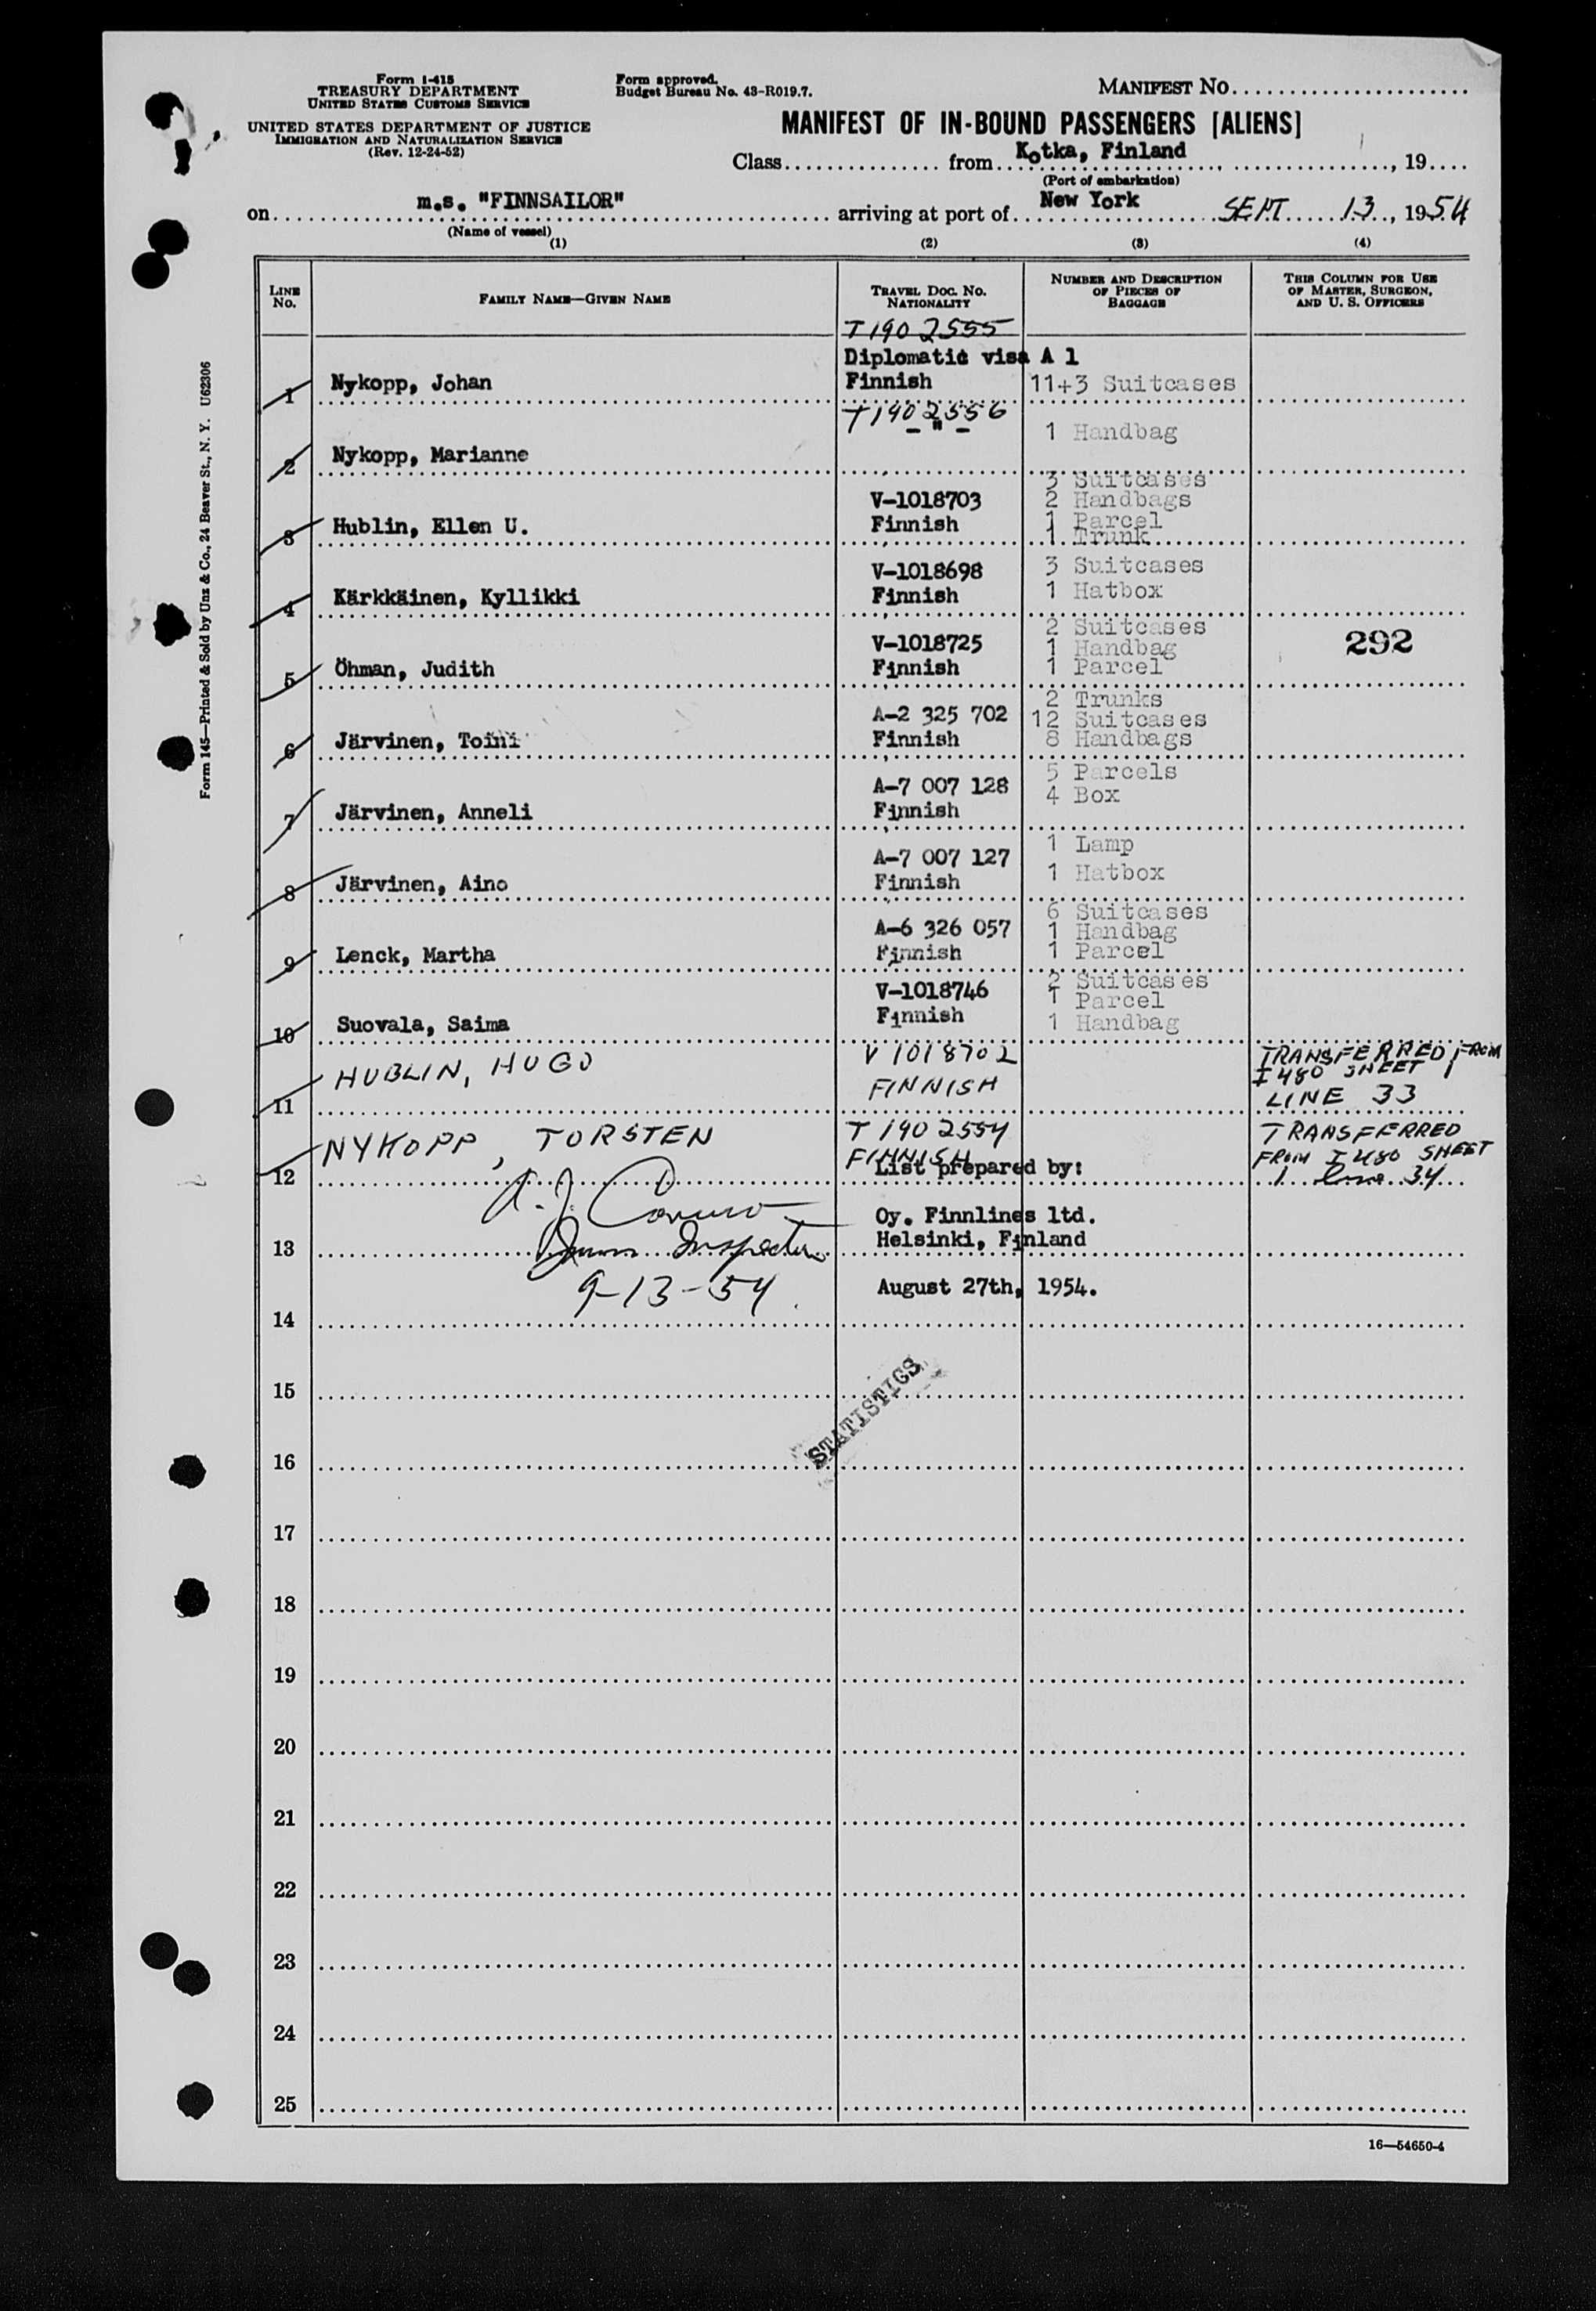 Form I-415
TREASURY DEPARTMENT
UNITED STATES CUSTOMS SERVICE
UNITED STATES DEPARTMENT OF JUSTICE
IMMIGRATION AND NATURALIZATION SERVICE
(Rev. 12-24-52)
Form approved.
Budget Bureau No. 43-R019.7.
MANIFEST NO.
MANIFEST OF IN-BOUND PASSENGERS [ALIENS]
Class from Kotka, Finland, , 19
(Port of embarkation)
on m.s. "FINNSAILOR" arriving at port of New York SEPT. 13, 1954
(Name of vessel)
(1) (2) (3) (4)
LINE NO. FAMILY NAME—GIVEN NAME TRAVEL DOC. NO. NATIONALITY NUMBER AND DESCRIPTION OF PIECES OF BAGGAGE THIS COLUMN FOR USE OF MASTER, SURGEON, AND U. S. OFFICERS
T190 2555
Diplomatic visa A 1
1 Nykopp, Johan Finnish 11+3 Suitcases
T190 2556
- " - 1 Handbag
2 Nykopp, Marianne
3 Suitcases
V-1018703 2 Handbags
3 Hublin, Ellen U. Finnish 1 Parcel
1 Trunk
V-1018698 3 Suitcases
4 Kärkkäinen, Kyllikki Finnish 1 Hatbox
2 Suitcases
V-1018725 1 Handbag 292
5 Öhman, Judith Finnish 1 Parcel
2 Trunks
A-2 325 702 12 Suitcases
6 Järvinen, Toini Finnish 8 Handbags
5 Parcels
A-7 007 128 4 Box
7 Järvinen, Anneli Finnish
1 Lamp
A-7 007 127 1 Hatbox
8 Järvinen, Aino Finnish
6 Suitcases
A-6 326 057 1 Handbag
9 Lenck, Martha Finnish 1 Parcel
2 Suitcases
V-1018746 1 Parcel
10 Suovala, Saima Finnish 1 Handbag
HUBLIN, HUGO V 1018702 TRANSFERRED FROM
I 480 SHEET 1
11 FINNISH LINE 33
NYKOPP, TORSTEN T 190 2554 TRANSFERRED
12 FINNISH FROM I 480 SHEET
1 Line 34
List prepared by:
A. J. Caruso
Oy. Finnlines ltd.
13 Immn Inspector Helsinki, Finland
9-13-54 August 27th, 1954.
14
15
STATISTICS
16
17
18
19
20
21
22
23
24
25
16—54650-4
Form 145—Printed & Sold by Unz & Co., 24 Beaver St., N. Y. U62306